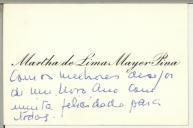 Martha de Lima Mayer Pina
Com os melhores desejos
de um Novo Ano com
muita felicidade para
todos.